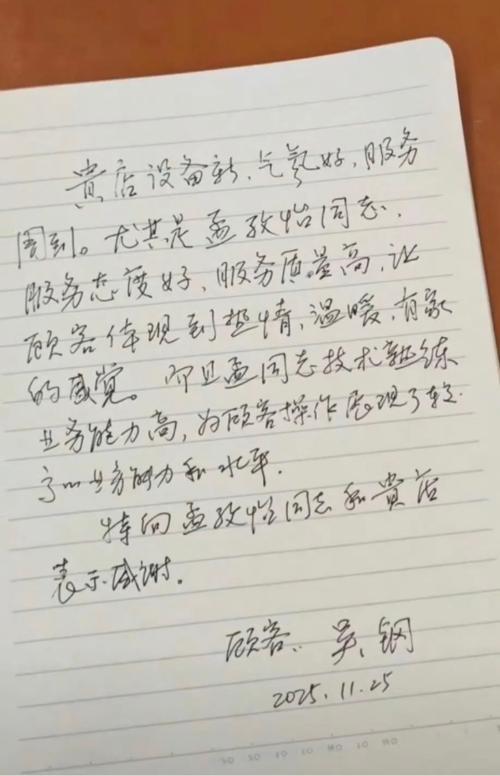 貴店设备新,气氛好,服务
周到。尤其是孟致怡同志,
服务态度好,服务质量高,让
顾客体现到热情,温暖,有家
的感觉。而且孟同志技术熟练
业务能力高,为顾客操作展现了较
高的业务能力和水平.
特向孟致怡同志和貴店
表示感谢.
顾客: 吴钢
2025.11.25